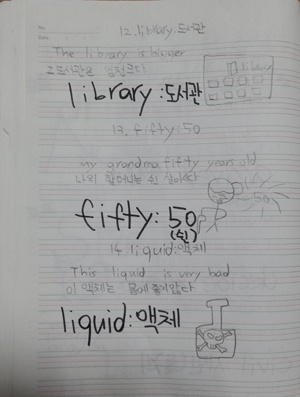 12. library:도서관
The library is bigger
library
library:도서관
13. fifty:50
my grandma fifty years old
나의 할머니는 쉰 살이시다
50
fifty:50
(쉰)
14. liquid:액체
This liquid is very bad
이 액체는 몸에 좋지않다
liquid:액체